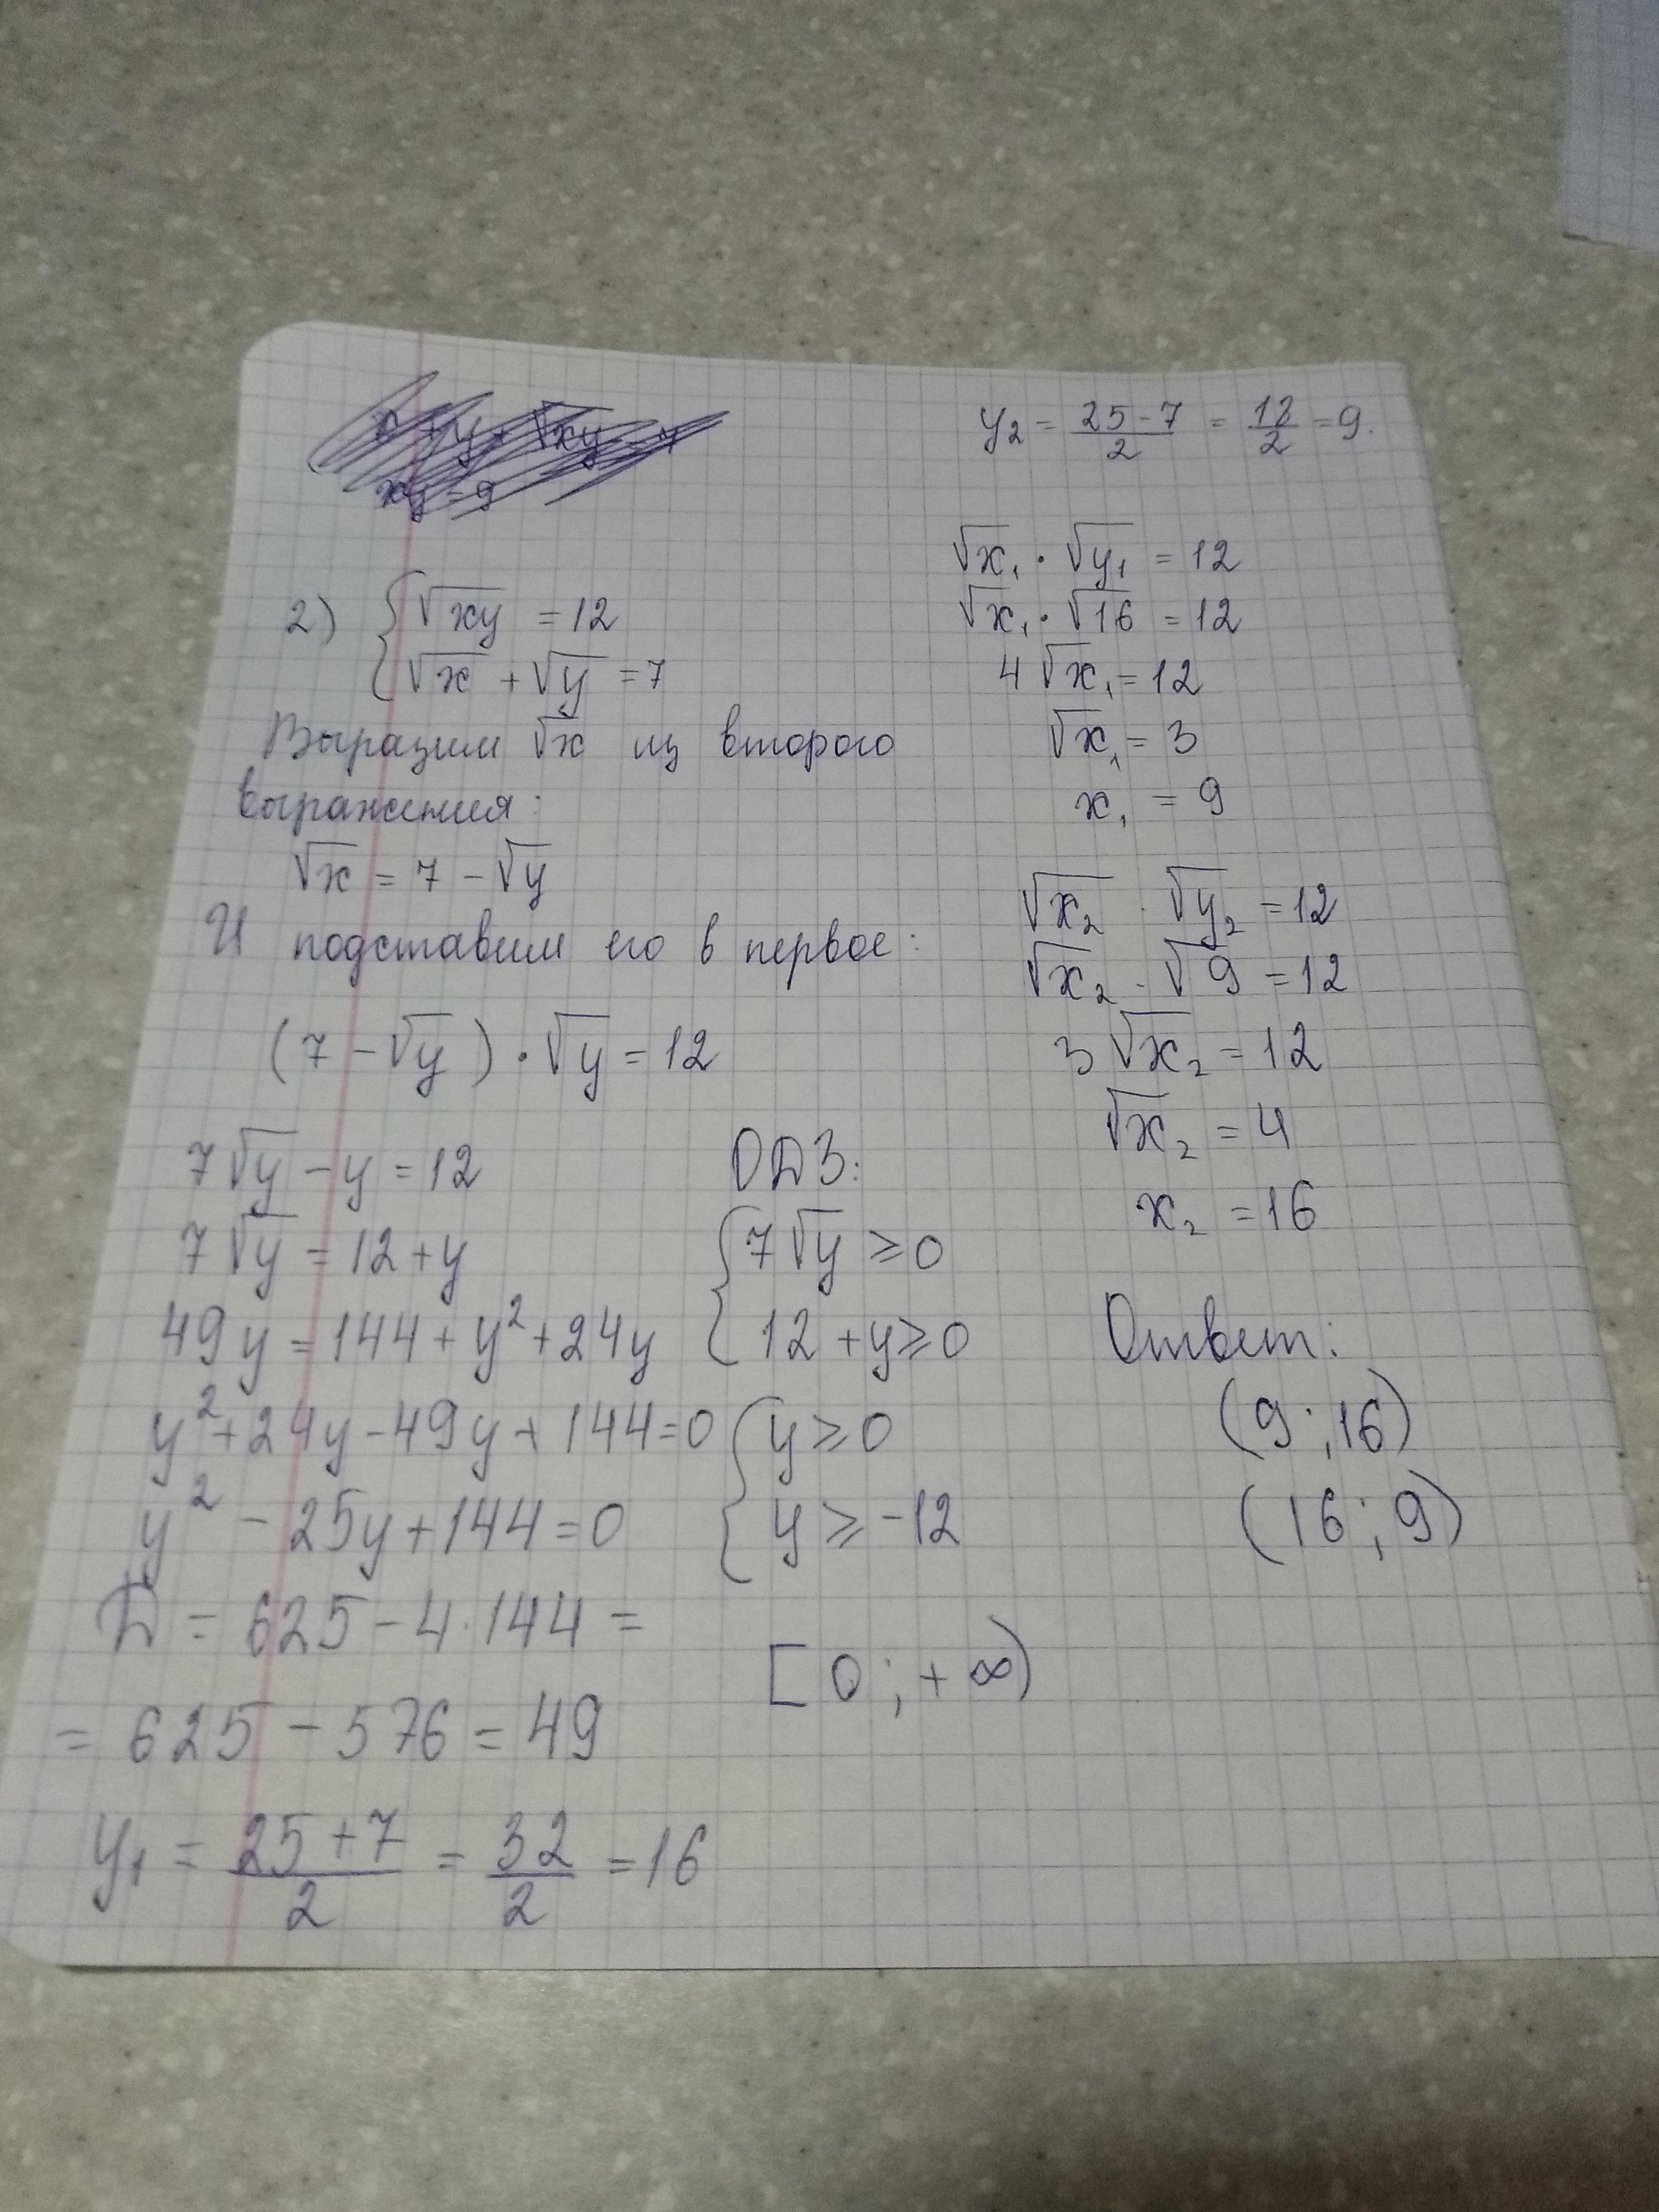 x + y + √xy = 7
xy = 9
2) { √xy = 12
√x + √y = 7
Выразим √x из второго
выражения:
√x = 7 - √y
И подставим его в первое:
(7 - √y) · √y = 12
7√y - y = 12
7√y = 12 + y
49y = 144 + y² + 24y
y² + 24y - 49y + 144 = 0
y² - 25y + 144 = 0
D = 625 - 4·144 =
= 625 - 576 = 49
y₁ = (25 + 7)/2 = 32/2 = 16
ОДЗ:
{ 7√y ≥ 0
12 + y ≥ 0
{ y ≥ 0
y ≥ -12
[0; +∞)
y₂ = (25 - 7)/2 = 18/2 = 9.
√x₁ · √y₁ = 12
√x₁ · √16 = 12
4√x₁ = 12
√x₁ = 3
x₁ = 9
√x₂ · √y₂ = 12
√x₂ · √9 = 12
3√x₂ = 12
√x₂ = 4
x₂ = 16
Ответ:
(9; 16)
(16; 9)